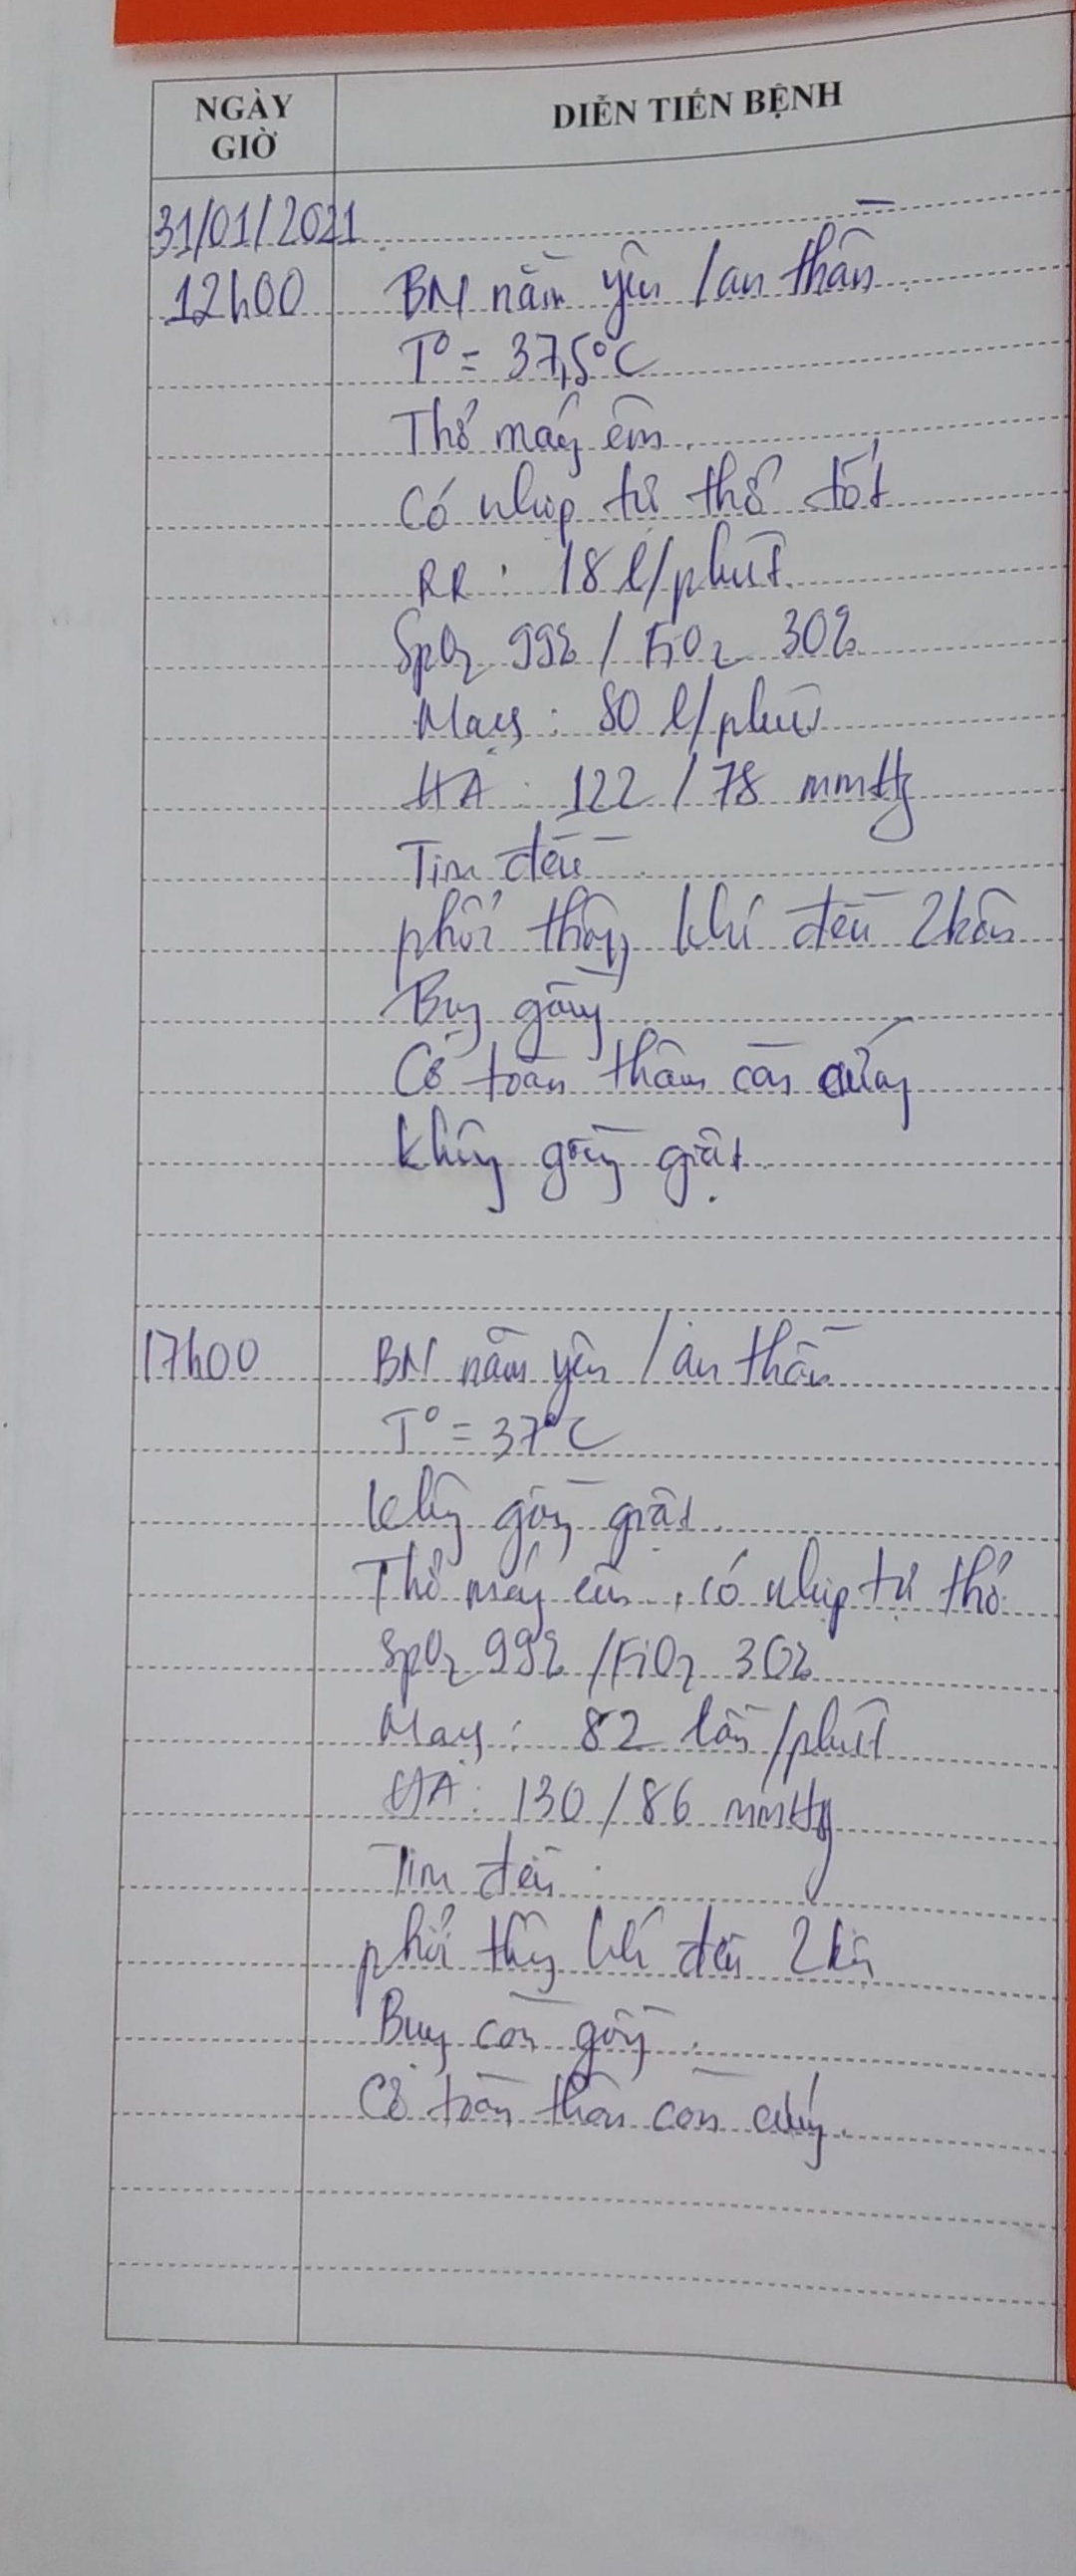 NGÀY
GIỜ
DIỄN TIẾN BỆNH
31/01/2021
12h00 BN nằm yên / an thần
T° = 37,5°C
Thở máy êm.
Có nhịp tự thở tốt
RR : 18 l/phút
SpO2 99% / FiO2 30%
Mạch : 80 l/phút
HA : 122 / 78 mmHg
Tim đều
phổi thông khí đều 2 bên
Bụng gồng
Cơ toàn thân còn cứng
không gồng giật.
17h00 BN nằm yên / an thần
T° = 37°C
không gồng giật.
Thở máy êm, có nhịp tự thở.
SpO2 99% / FiO2 30%
Mạch : 82 lần/phút
HA : 130 / 86 mmHg
Tim đều
phổi thông khí đều 2 bên
Bụng còn gồng.
Cơ toàn thân còn cứng.